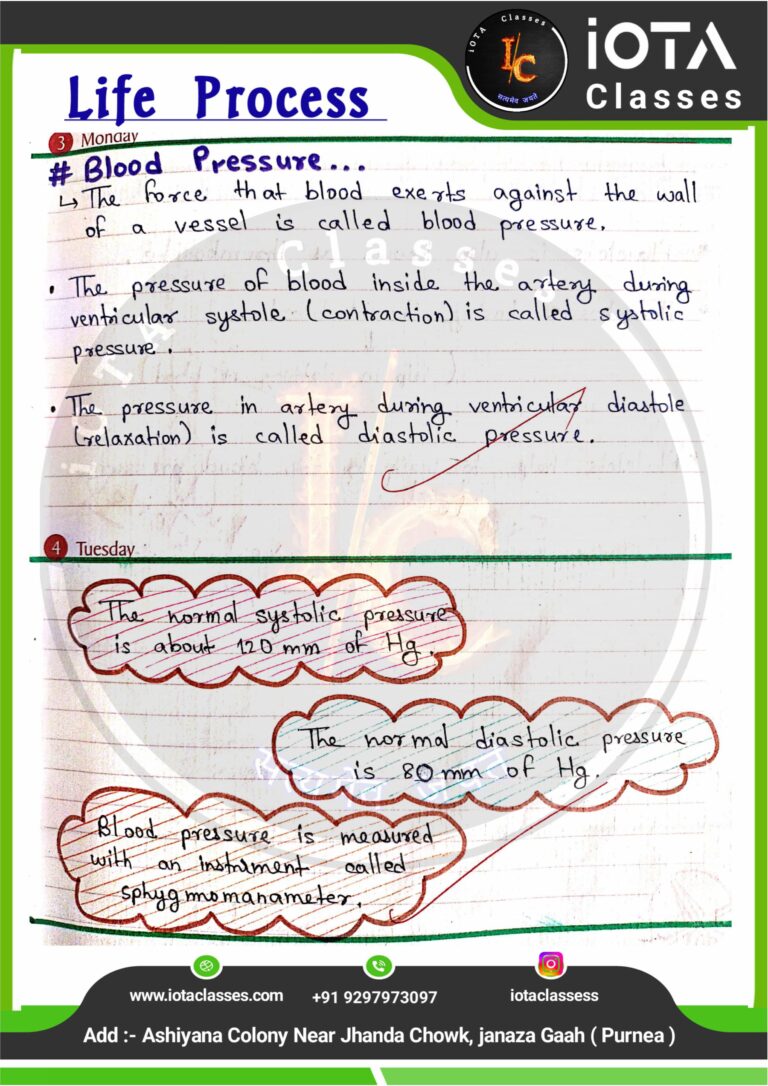 iOTA Classes
I/C
सत्यमेव जयते
iOTA
Classes
Life Process
3 Monday
# Blood Pressure...
↳ The force that blood exerts against the wall
of a vessel is called blood pressure.
• The pressure of blood inside the artery during
ventricular systole (contraction) is called systolic
pressure.
• The pressure in artery during ventricular diastole
(relaxation) is called diastolic pressure.
4 Tuesday
The normal systolic pressure
is about 120 mm of Hg.
The normal diastolic pressure
is 80 mm of Hg.
Blood pressure is measured
with an instrument called
sphygmomanameter.
www.iotaclasses.com
+91 9297973097
iotaclassess
Add :- Ashiyana Colony Near Jhanda Chowk, janaza Gaah ( Purnea )